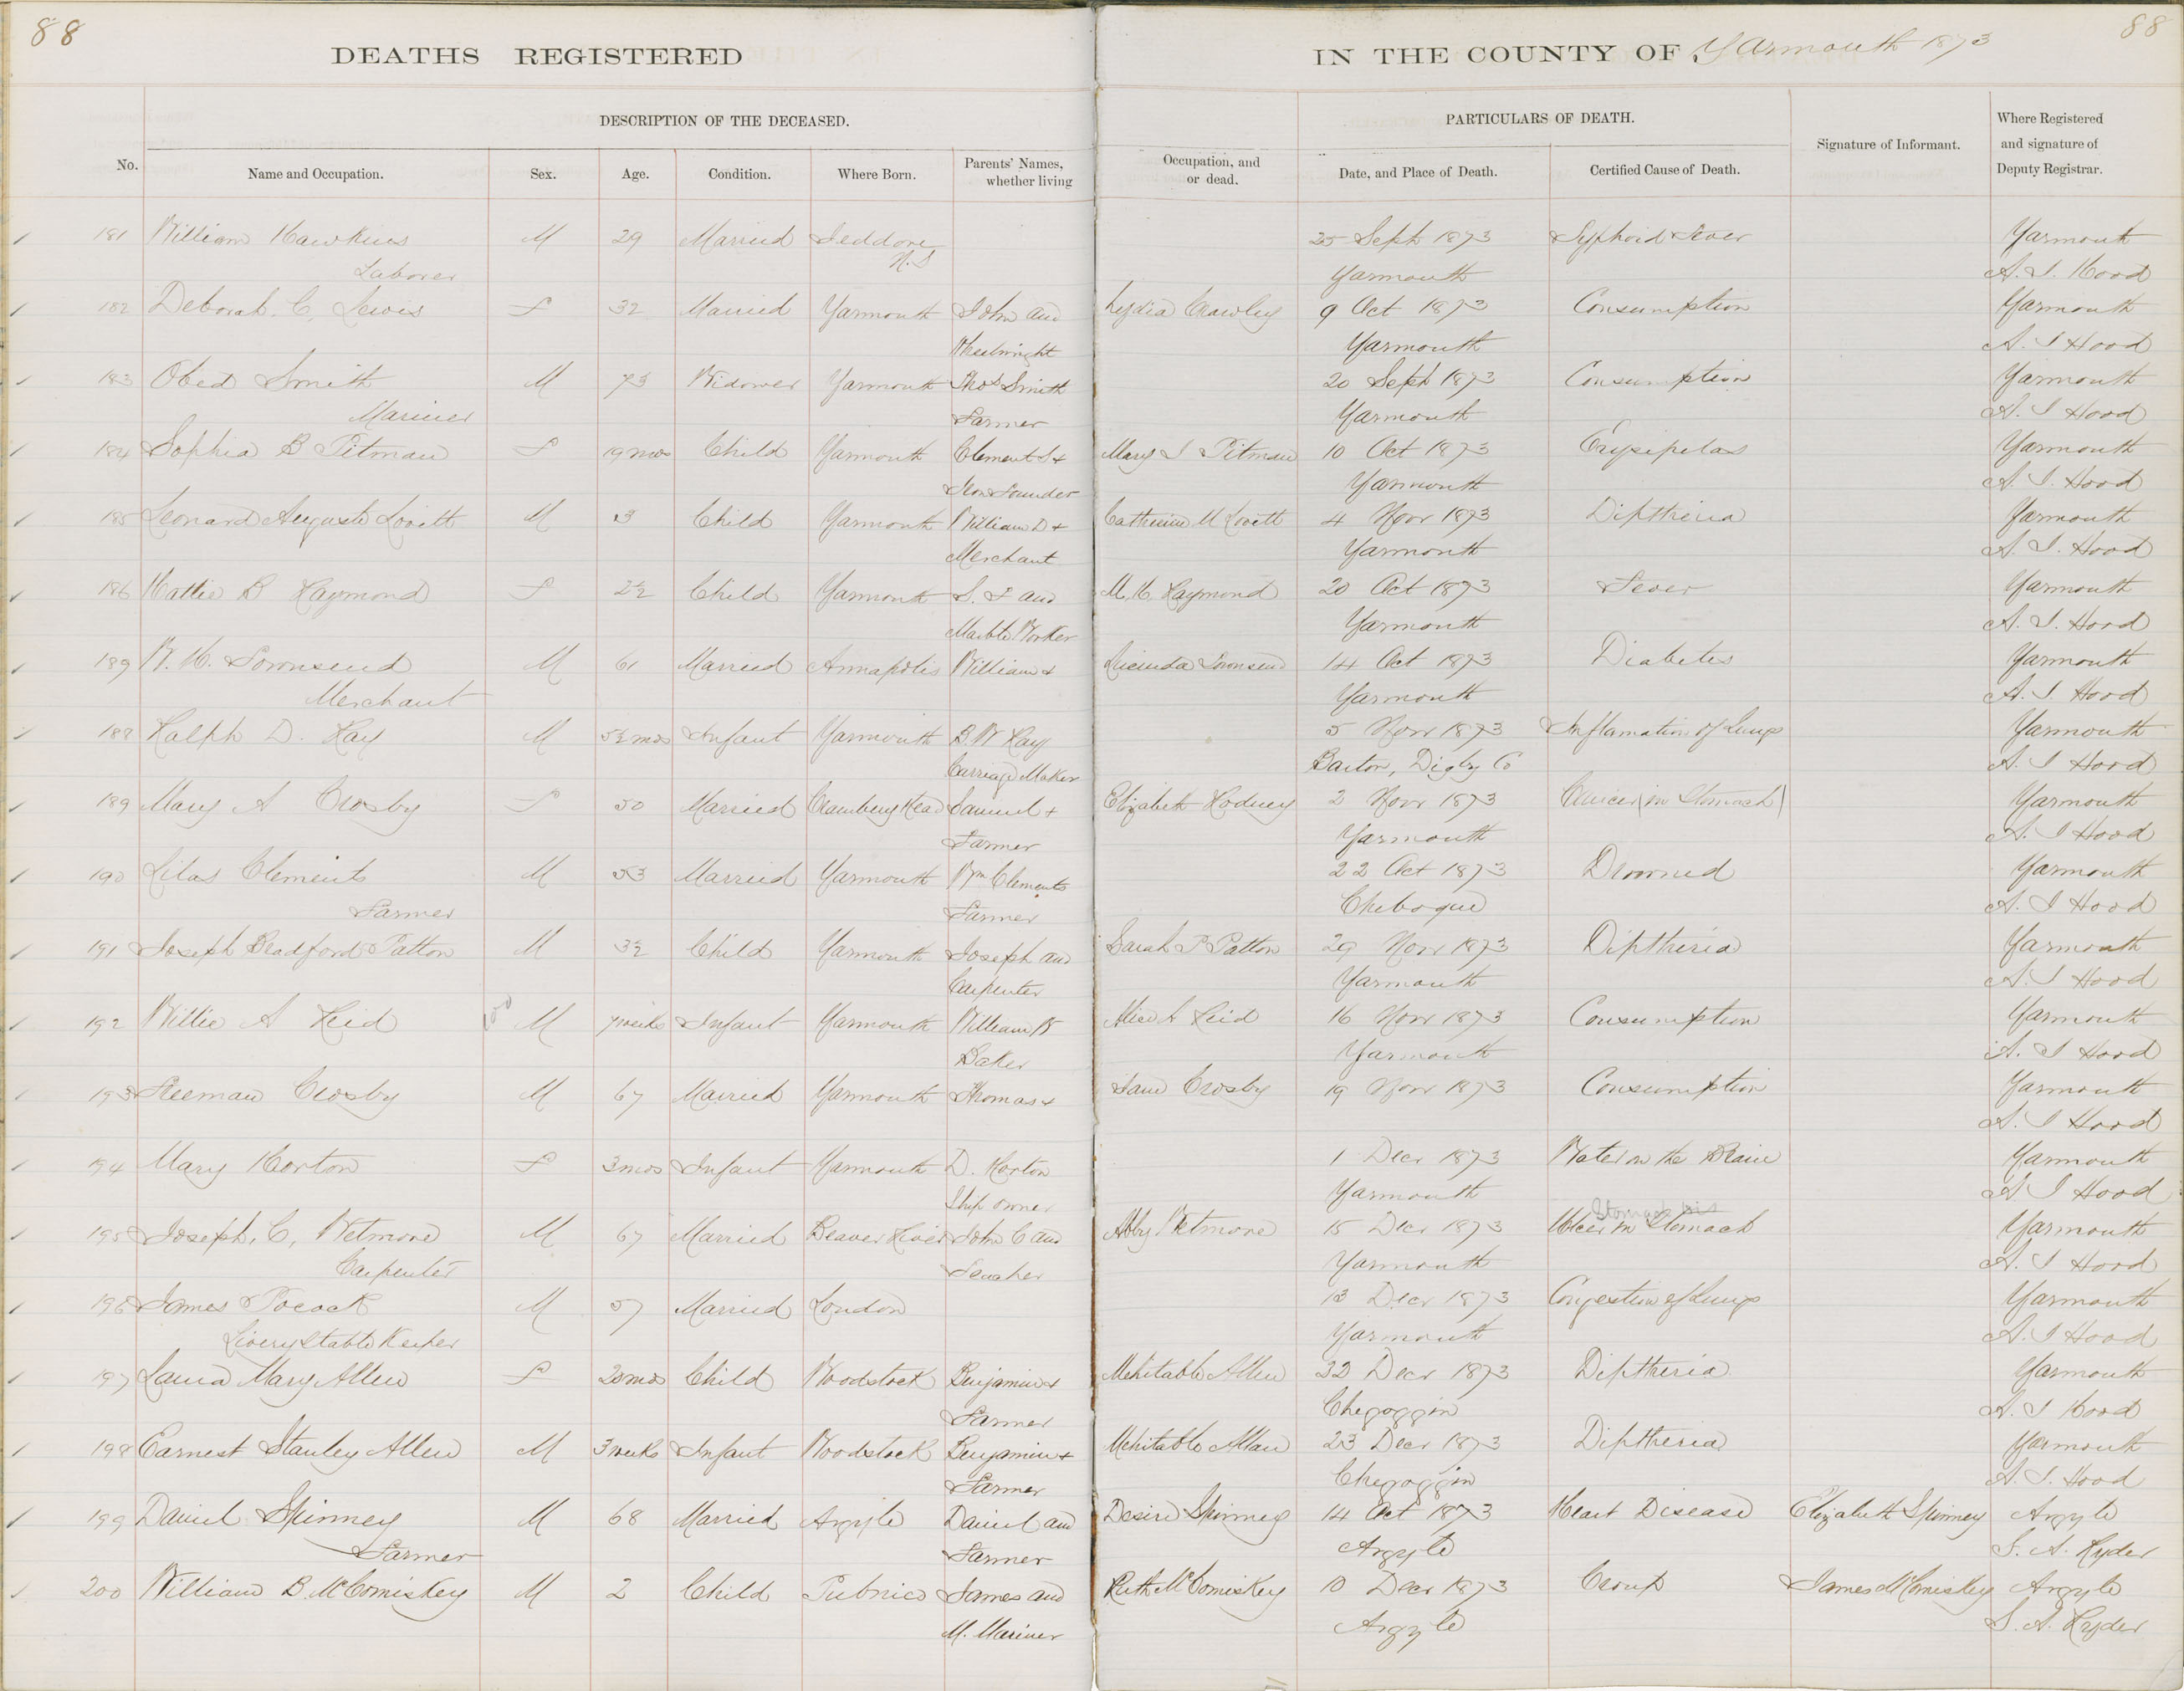 88
88
DEATHS REGISTERED IN THE COUNTY OF Yarmouth 1873
DESCRIPTION OF THE DECEASED. PARTICULARS OF DEATH.
No. Name and Occupation. Sex. Age. Condition. Where Born. Parents' Names, whether living Occupation, and or dead. Date, and Place of Death. Certified Cause of Death. Signature of Informant. Where Registered and signature of Deputy Registrar.
181 William Hawkins M 29 Married Jeddore 25 Sept 1873 Typhoid Fever Yarmouth
Laborer N.S Yarmouth A. J. Hood
182 Deborah. C. Lewis F 32 Married Yarmouth John and Lydia Crawley 9 Oct 1873 Consumption Yarmouth
Wheelwright Yarmouth A. J Hood
183 Obed Smith M 73 Widower Yarmouth Thos Smith 20 Sept 1873 Consumption Yarmouth
Mariner Farmer Yarmouth A. J Hood
184 Sophia B Pitman F 19 mos Child Yarmouth Clement S + Mary J Pitman 10 Oct 1873 Erysipelas Yarmouth
Iron Founder Yarmouth A. J. Hood
185 Leonard Auguste Lovitt M 3 Child Yarmouth William D + Catherine M Lovitt 4 Novr 1873 Diptheria Yarmouth
Merchant Yarmouth A. J. Hood
186 Hattie B Raymond F 2½ Child Yarmouth S. F and M. H. Raymond 20 Oct 1873 Fever Yarmouth
Marble Worker Yarmouth A. J. Hood
189 W. H. Townsend M 61 Married Annapolis William + Lucinda Townsend 14 Oct 1873 Diabetes Yarmouth
Merchant Yarmouth A. J. Hood
188 Ralph D. Ray M 5½ mos Infant Yarmouth B. W Ray 5 Novr 1873 Inflamation of Lungs Yarmouth
Carriage Maker Barton, Digby Co A. J Hood
189 Mary A Crosby F 50 Married Cranberry Head Samuel + Elizabeth Rodney 2 Novr 1873 Cancer (in Stomach) Yarmouth
Farmer Yarmouth A. J Hood
190 Silas Clements M 53 Married Yarmouth Wm Clements 22 Oct 1873 Drowned Yarmouth
Farmer Farmer Chebogue A. J Hood
191 Joseph Bradford Patton M 3½ Child Yarmouth Joseph and Sarah P Patton 29 Novr 1873 Diptheria Yarmouth
Carpenter Yarmouth A. J Hood
192 Willie A Reid M 7 weeks Infant Yarmouth William W Alice A Reid 16 Novr 1873 Consumption Yarmouth
Baker Yarmouth A. J Hood
193 Freeman Crosby M 67 Married Yarmouth Thomas + Jane Crosby 19 Novr 1873 Consumption Yarmouth
A. J Hood
194 Mary Horton F 3 mos Infant Yarmouth D. Horton 1 Decr 1873 Water on the Brain Yarmouth
Ship owner Yarmouth A J Hood
195 Joseph, C, Wetmore M 67 Married Beaver River John C and Abby Wetmore 15 Decr 1873 Ulcer in Stomach Yarmouth
Carpenter Teacher Yarmouth A. J Hood
196 James Pocock M 57 Married London 13 Decr 1873 Congestion of Lungs Yarmouth
Livery Stable Keeper Yarmouth A. J Hood
197 Laura Mary Allen F 20 mos Child Woodstock Benjamin + Mehitable Allen 22 Decr 1873 Diptheria Yarmouth
Farmer Chegoggin A. J Hood
198 Earnest Stanley Allen M 3 weeks Infant Woodstock Benjamin + Mehitable Allan 23 Decr 1873 Diptheria Yarmouth
Farmer Chegoggin A. J. Hood
199 Daniel Spinney M 68 Married Argyle Daniel and Desire Spinney 14 Oct 1873 Heart Disease Elizabeth Spinney Argyle
Farmer Farmer Argyle J. A. Ryder
200 William B. McComiskey M 2 Child Pubnico James and Ruth McComiskey 10 Decr 1873 Croup James McComiskey Argyle
M. Mariner Argyle J. A. Ryder